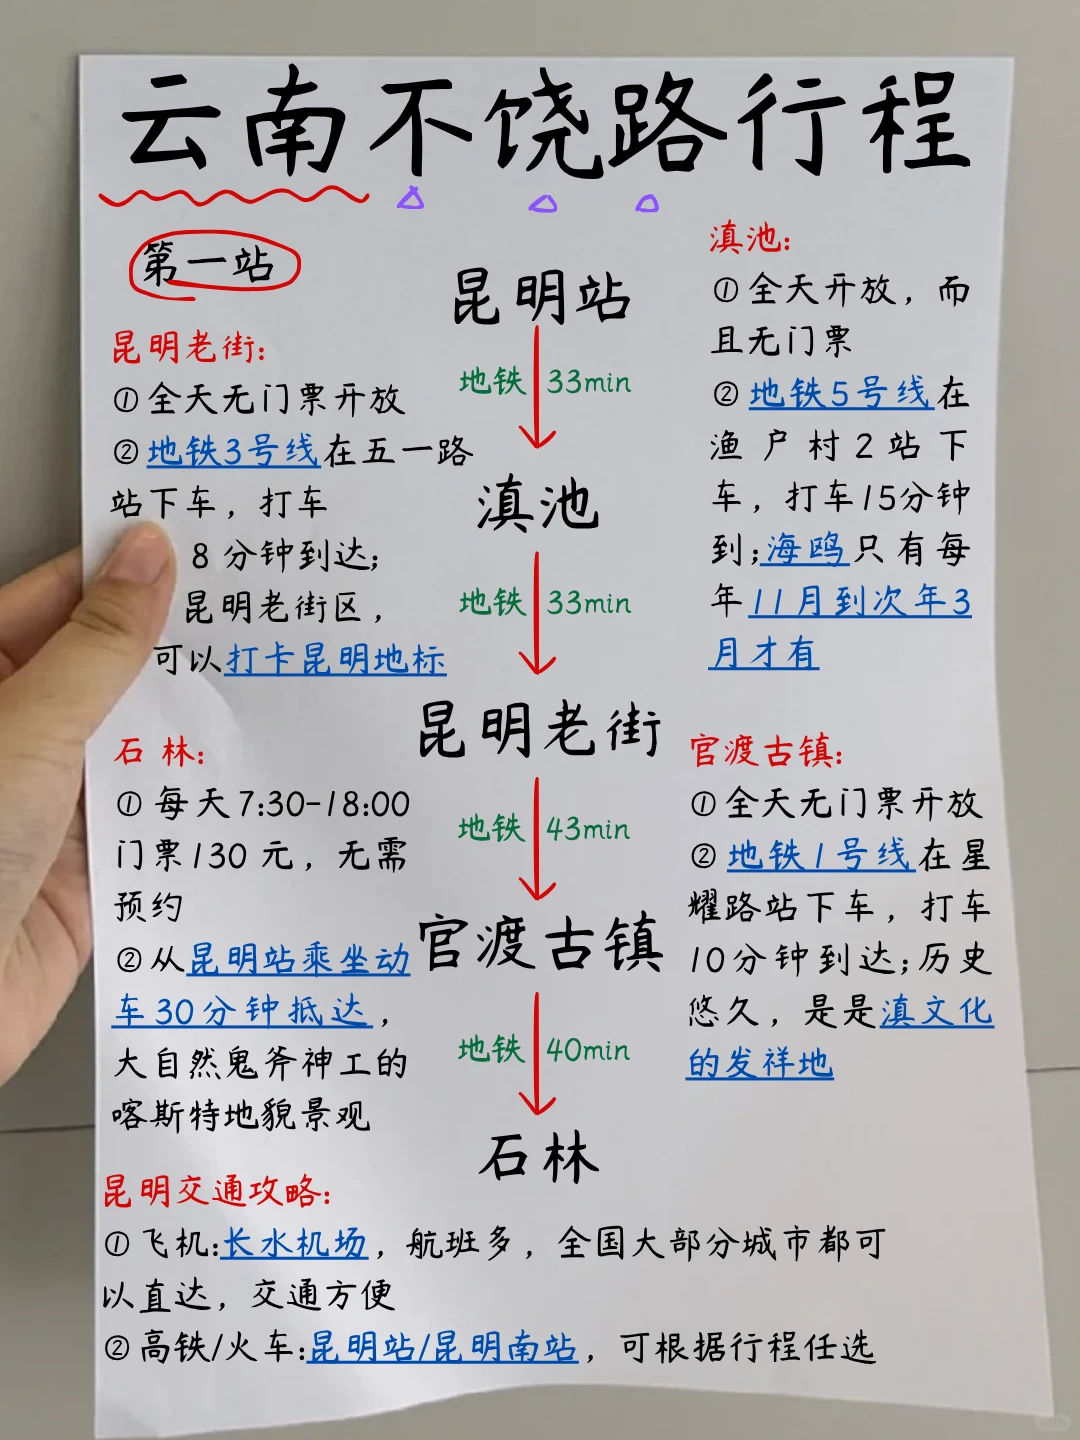 云南不饶路行程
第一站
昆明老街:
①全天无门票开放
②地铁3号线在五一路
站下车，打车
8分钟到达;
昆明老街区，
可以打卡昆明地标
昆明站
地铁 33min
滇池
地铁 33min
昆明老街
地铁 43min
官渡古镇
地铁 40min
石林
滇池:
①全天开放，而
且无门票
②地铁5号线在
渔户村2站下
车，打车15分钟
到;海鸥只有每
年11月到次年3
月才有
石林:
①每天7:30-18:00
门票130元，无需
预约
②从昆明站乘坐动
车30分钟抵达，
大自然鬼斧神工的
喀斯特地貌景观
官渡古镇:
①全天无门票开放
②地铁1号线在星
耀路站下车，打车
10分钟到达;历史
悠久，是是滇文化
的发祥地
昆明交通攻略:
①飞机:长水机场，航班多，全国大部分城市都可
以直达，交通方便
②高铁/火车:昆明站/昆明南站，可根据行程任选